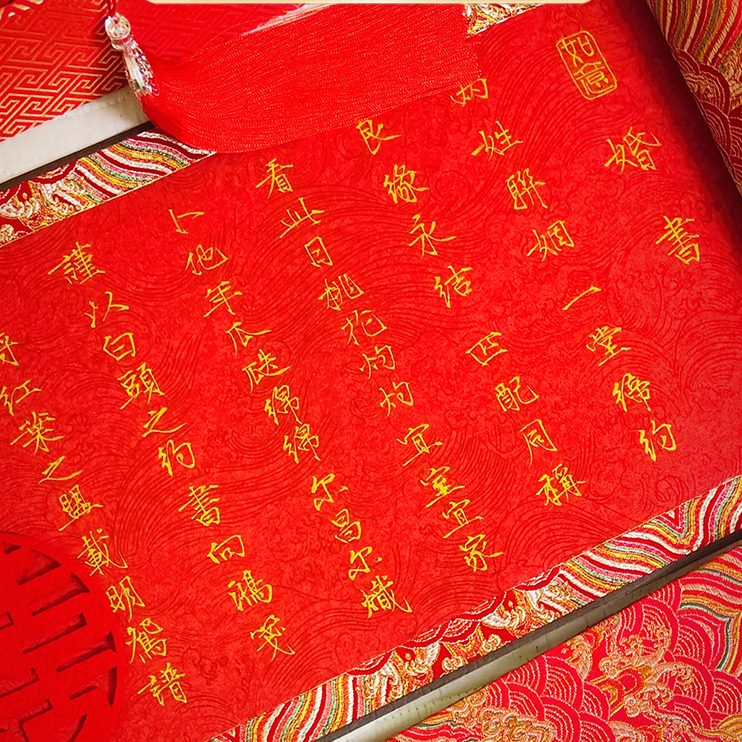 如意
婚書
兩姓聯姻一堂締約
良緣永結匹配同稱
看此日桃花灼灼宜室宜家
卜他年瓜瓞綿綿爾昌爾熾
謹以白頭之約書向鴻箋
將紅葉之盟載明鴛譜